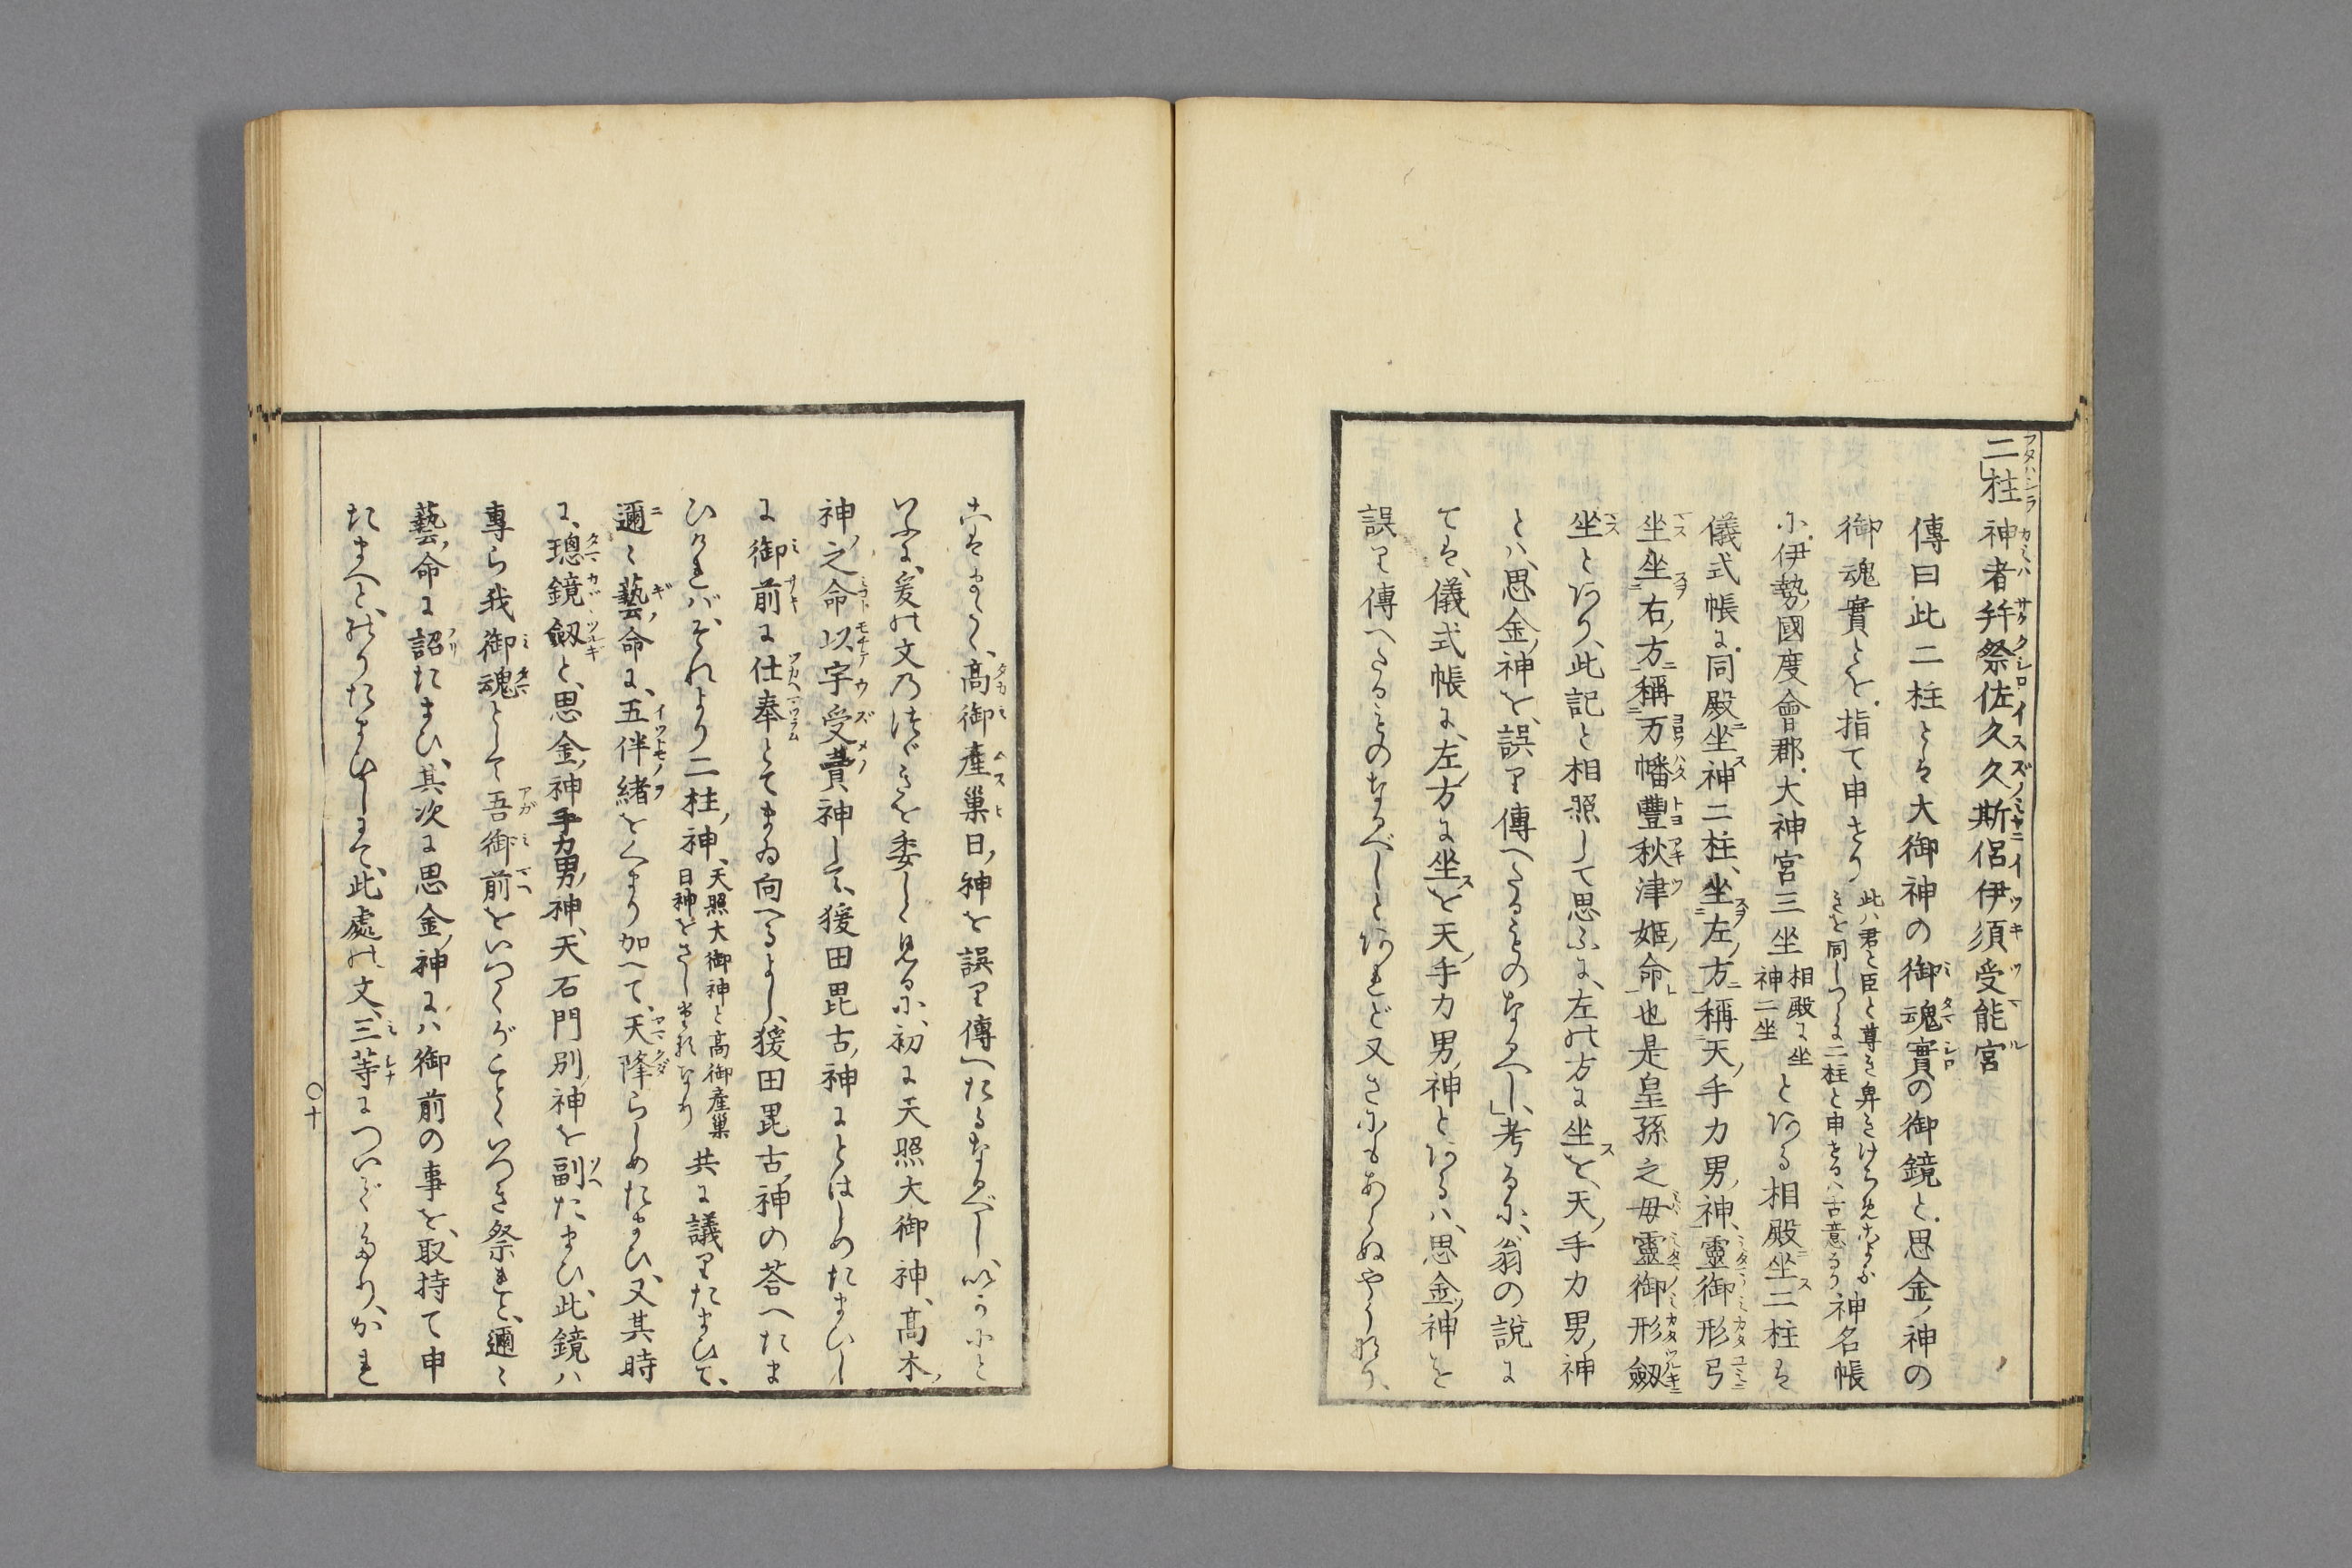 二柱神者幷祭佐久久斯侶伊須受能宮
傳曰此二柱とは大御神の御魂實の御鏡と思金ノ神の
御魂實とを指て申せり
此ハ君と臣と尊き卑きけぢめ
きを同しつらに二柱と申せるハ古意なり
神名帳
に伊勢ノ國度會郡大神宮三坐
相殿に坐
神二坐
とある相殿ニ坐ス二柱は
儀式帳に同殿ニ坐ス神二柱、坐左ノ方ニ稱天ノ手力男ノ神、靈御形弓
坐坐右ノ方ニ稱万幡豐秋津姬ノ命也是皇孫之母靈御形劔
坐とあり、此記と相照して思ふに、左の方に坐スを、天ノ手力男ノ神
とハ、思金ノ神を、誤り傳へたるものなるべし」考るに、翁の說に
ては、儀式帳に、左ノ方に坐スを天ノ手力男ノ神とあるハ、思金ノ神を
誤り傳へたるものなるべしとあれど又さにもあらぬやうなり、
高御產巢日ノ神を誤り傳へたるなるべし、いかにと
いふに、爰の文のつゞきを委しく見るに、初に天照大御神、高木ノ
神ノ之命以、宇受賣神して、猨田毘古ノ神にとはしめたまひし
に御前に仕奉とてまゐ向へるよし、猨田毘古ノ神の荅へたま
ひければ、それより二柱ノ神、
天照大御神と高御產巢
日神をさし奉れるなり
共に議りたまひて、
邇ニ藝ノ命に、五伴緒をくまり加へて、天降らしめたまひ、又其時
に、璁鏡劔と、思金ノ神手力男ノ神、天石門別ノ神を副たまひ、此鏡ハ
專ら我御魂として吾御前をいつくがごといつき祭れと、邇ニ
藝ノ命に詔たまひ、其次に思金ノ神にハ御前の事を、取持て申
たまへと、のりたまひしにて、此處の文、三等につい〴〵たり、かれ
〇十